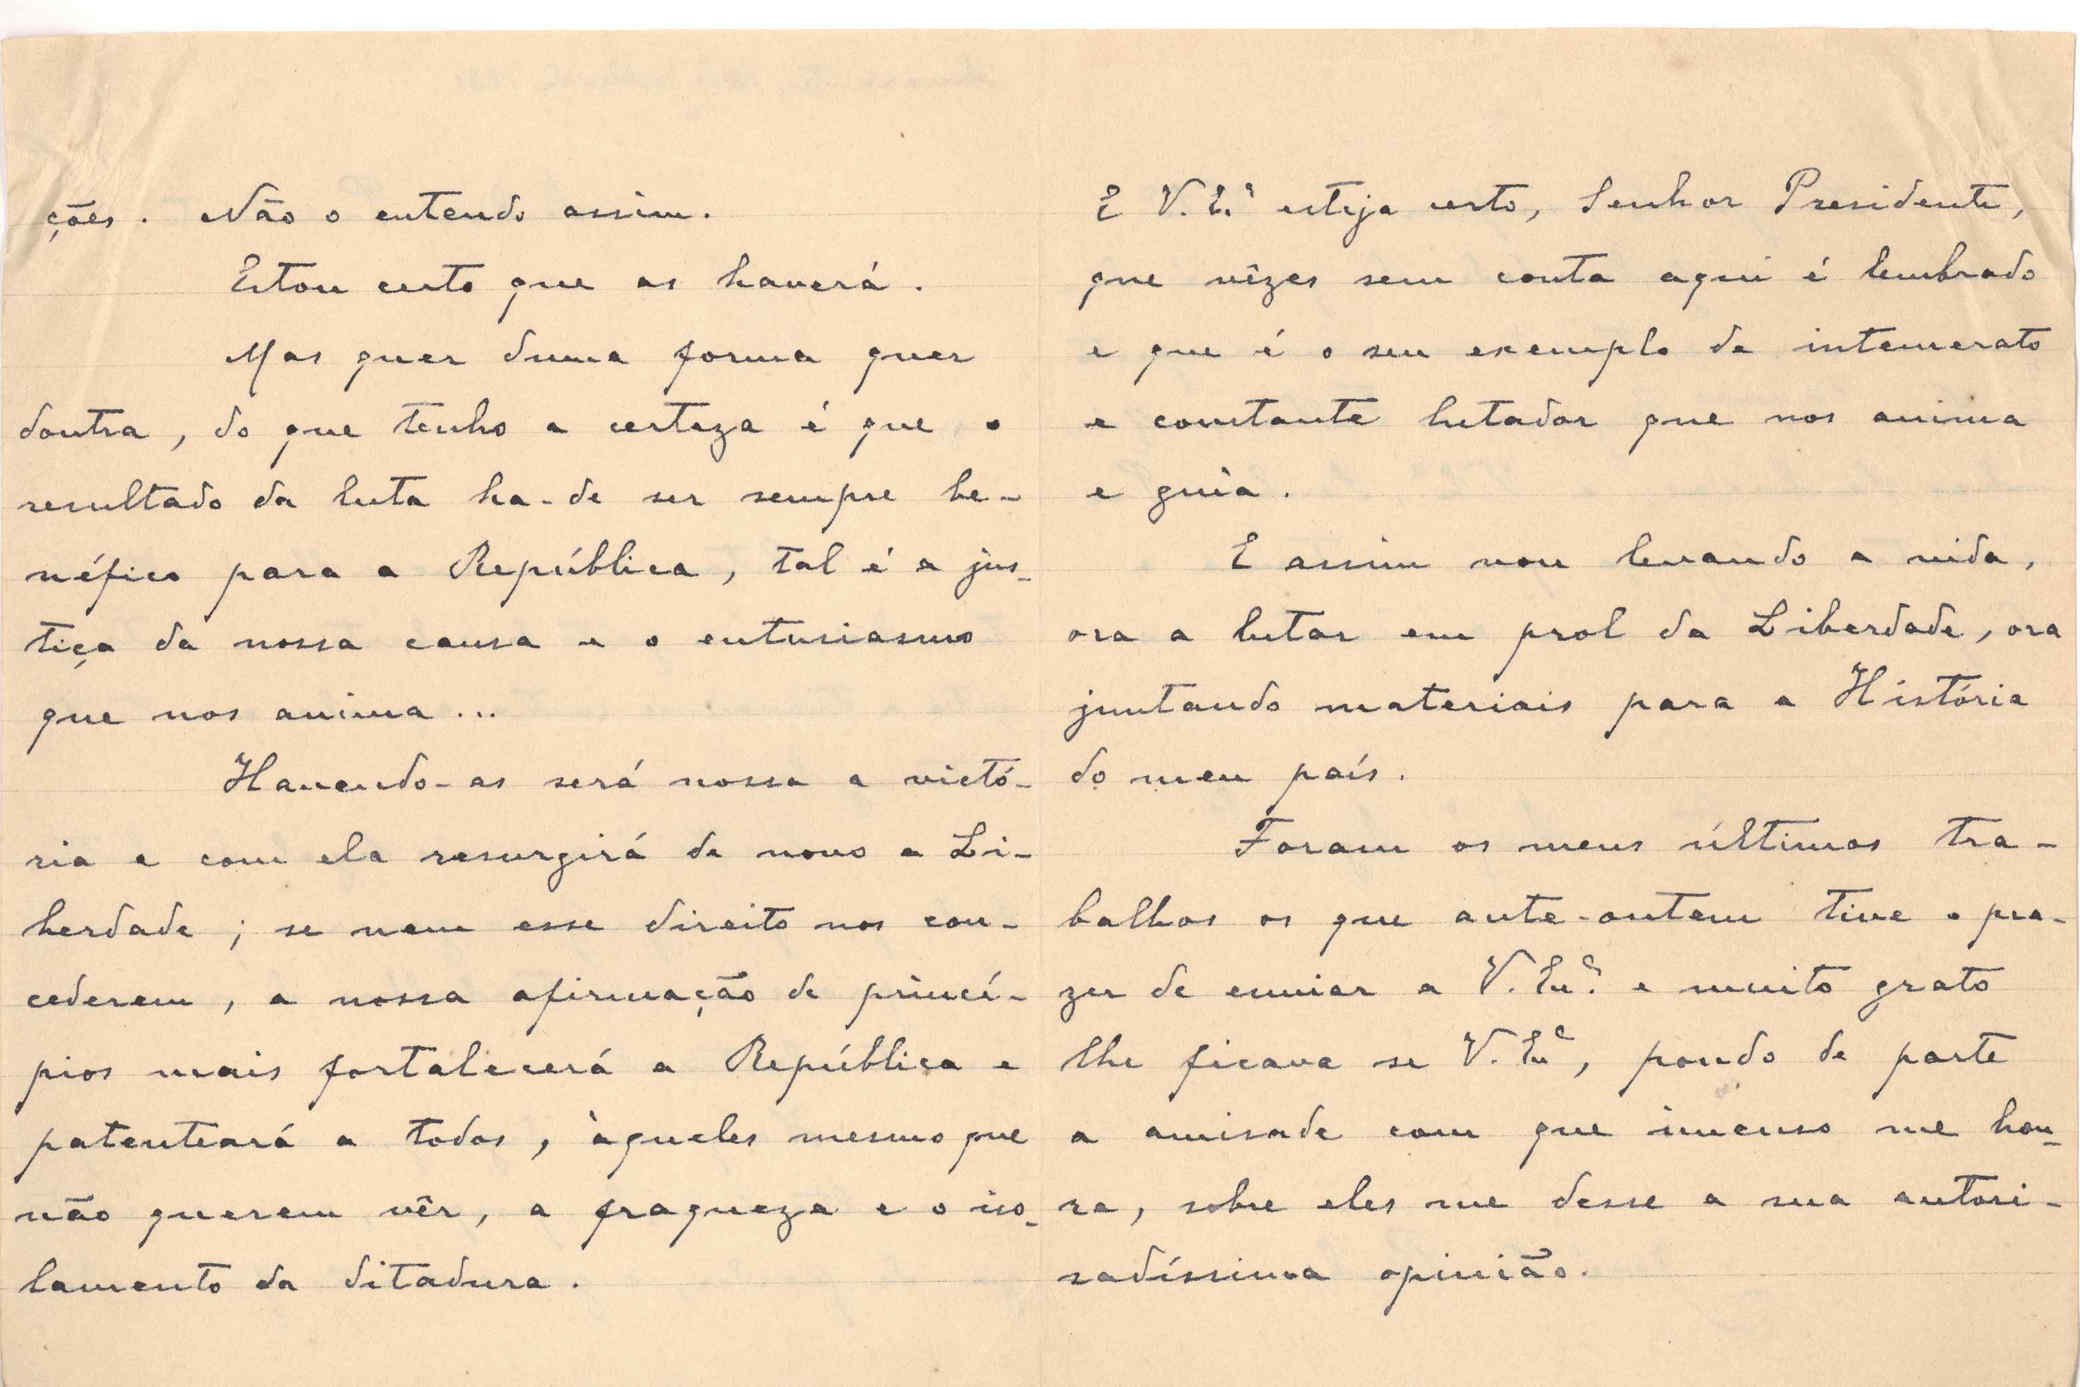 ções. Não o entendo assim.
Estou certo que as haverá.
Mas quer duma forma quer
doutra, do que tenho a certeza é que o
resultado da luta ha-de ser sempre be-
néfico para a República, tal é a jus-
tiça da nossa causa e o entusiasmo
que nos anima...
Havendo-as será nossa a victó-
ria e com ela resurgirá de novo a Li-
berdade; se nem esse direito nos con-
cederem, a nossa afirmação de princí-
pios mais fortalecerá a República e
patenteará a todos, àqueles mesmo que
não querem vêr, a fraqueza e o iso-
lamento da ditadura.
E V. Ex.ª esteja certo, Senhor Presidente,
que vêzes sem conta aqui é lembrado
e que é o seu exemplo de intemerato
e constante lutador que nos anima
e guia.
E assim vou levando a vida,
ora a lutar em prol da Liberdade, ora
juntando materiais para a História
do meu país.
Foram os meus últimos tra-
balhos os que ante-ontem tive o pra-
zer de enviar a V. Ex.ª e muito grato
lhe ficava se V. Ex.ª, pondo de parte
a amisade com que imenso me hon-
ra, sobre eles me desse a sua autori-
sadíssima opinião.